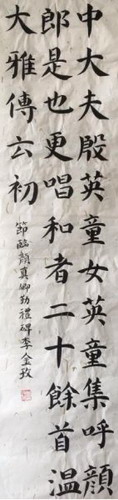 中大夫殷英童女英童集呼顏
郎是也更唱和者二十餘首溫
大雅傳云初
節臨顏真卿勤禮碑李全孜